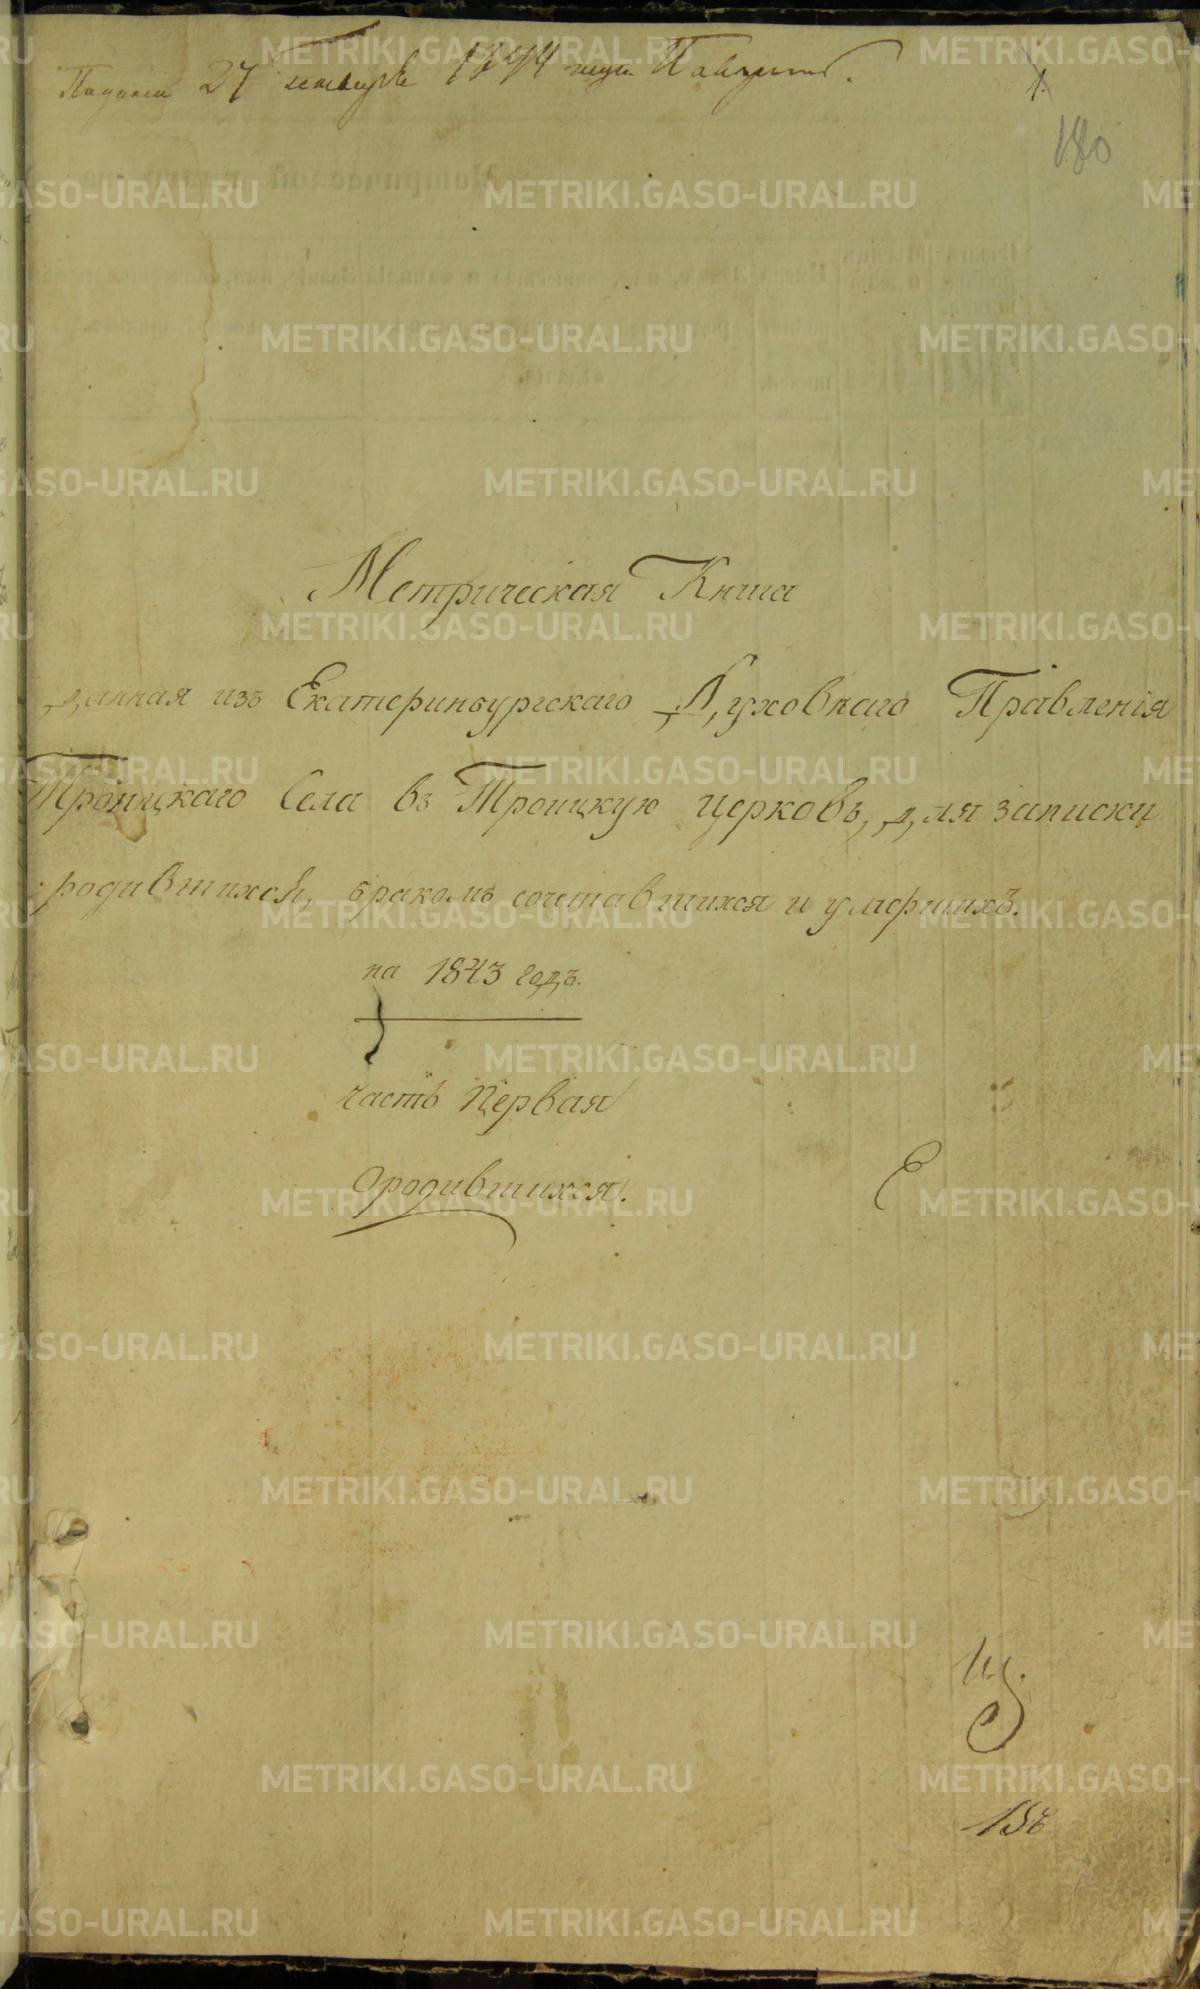 27 1844 года
1.
180
Метрическая Книга
данная изъ Екатеринбургскаго Духовнаго Правленія
Троицкаго Села въ Троицкую церковь, для записки
родившихся, бракомъ сочетавшихся и умершихъ.
на 1843 годъ.
часть Первая
о родившихся.
METRIKI.GASO-URAL.RU